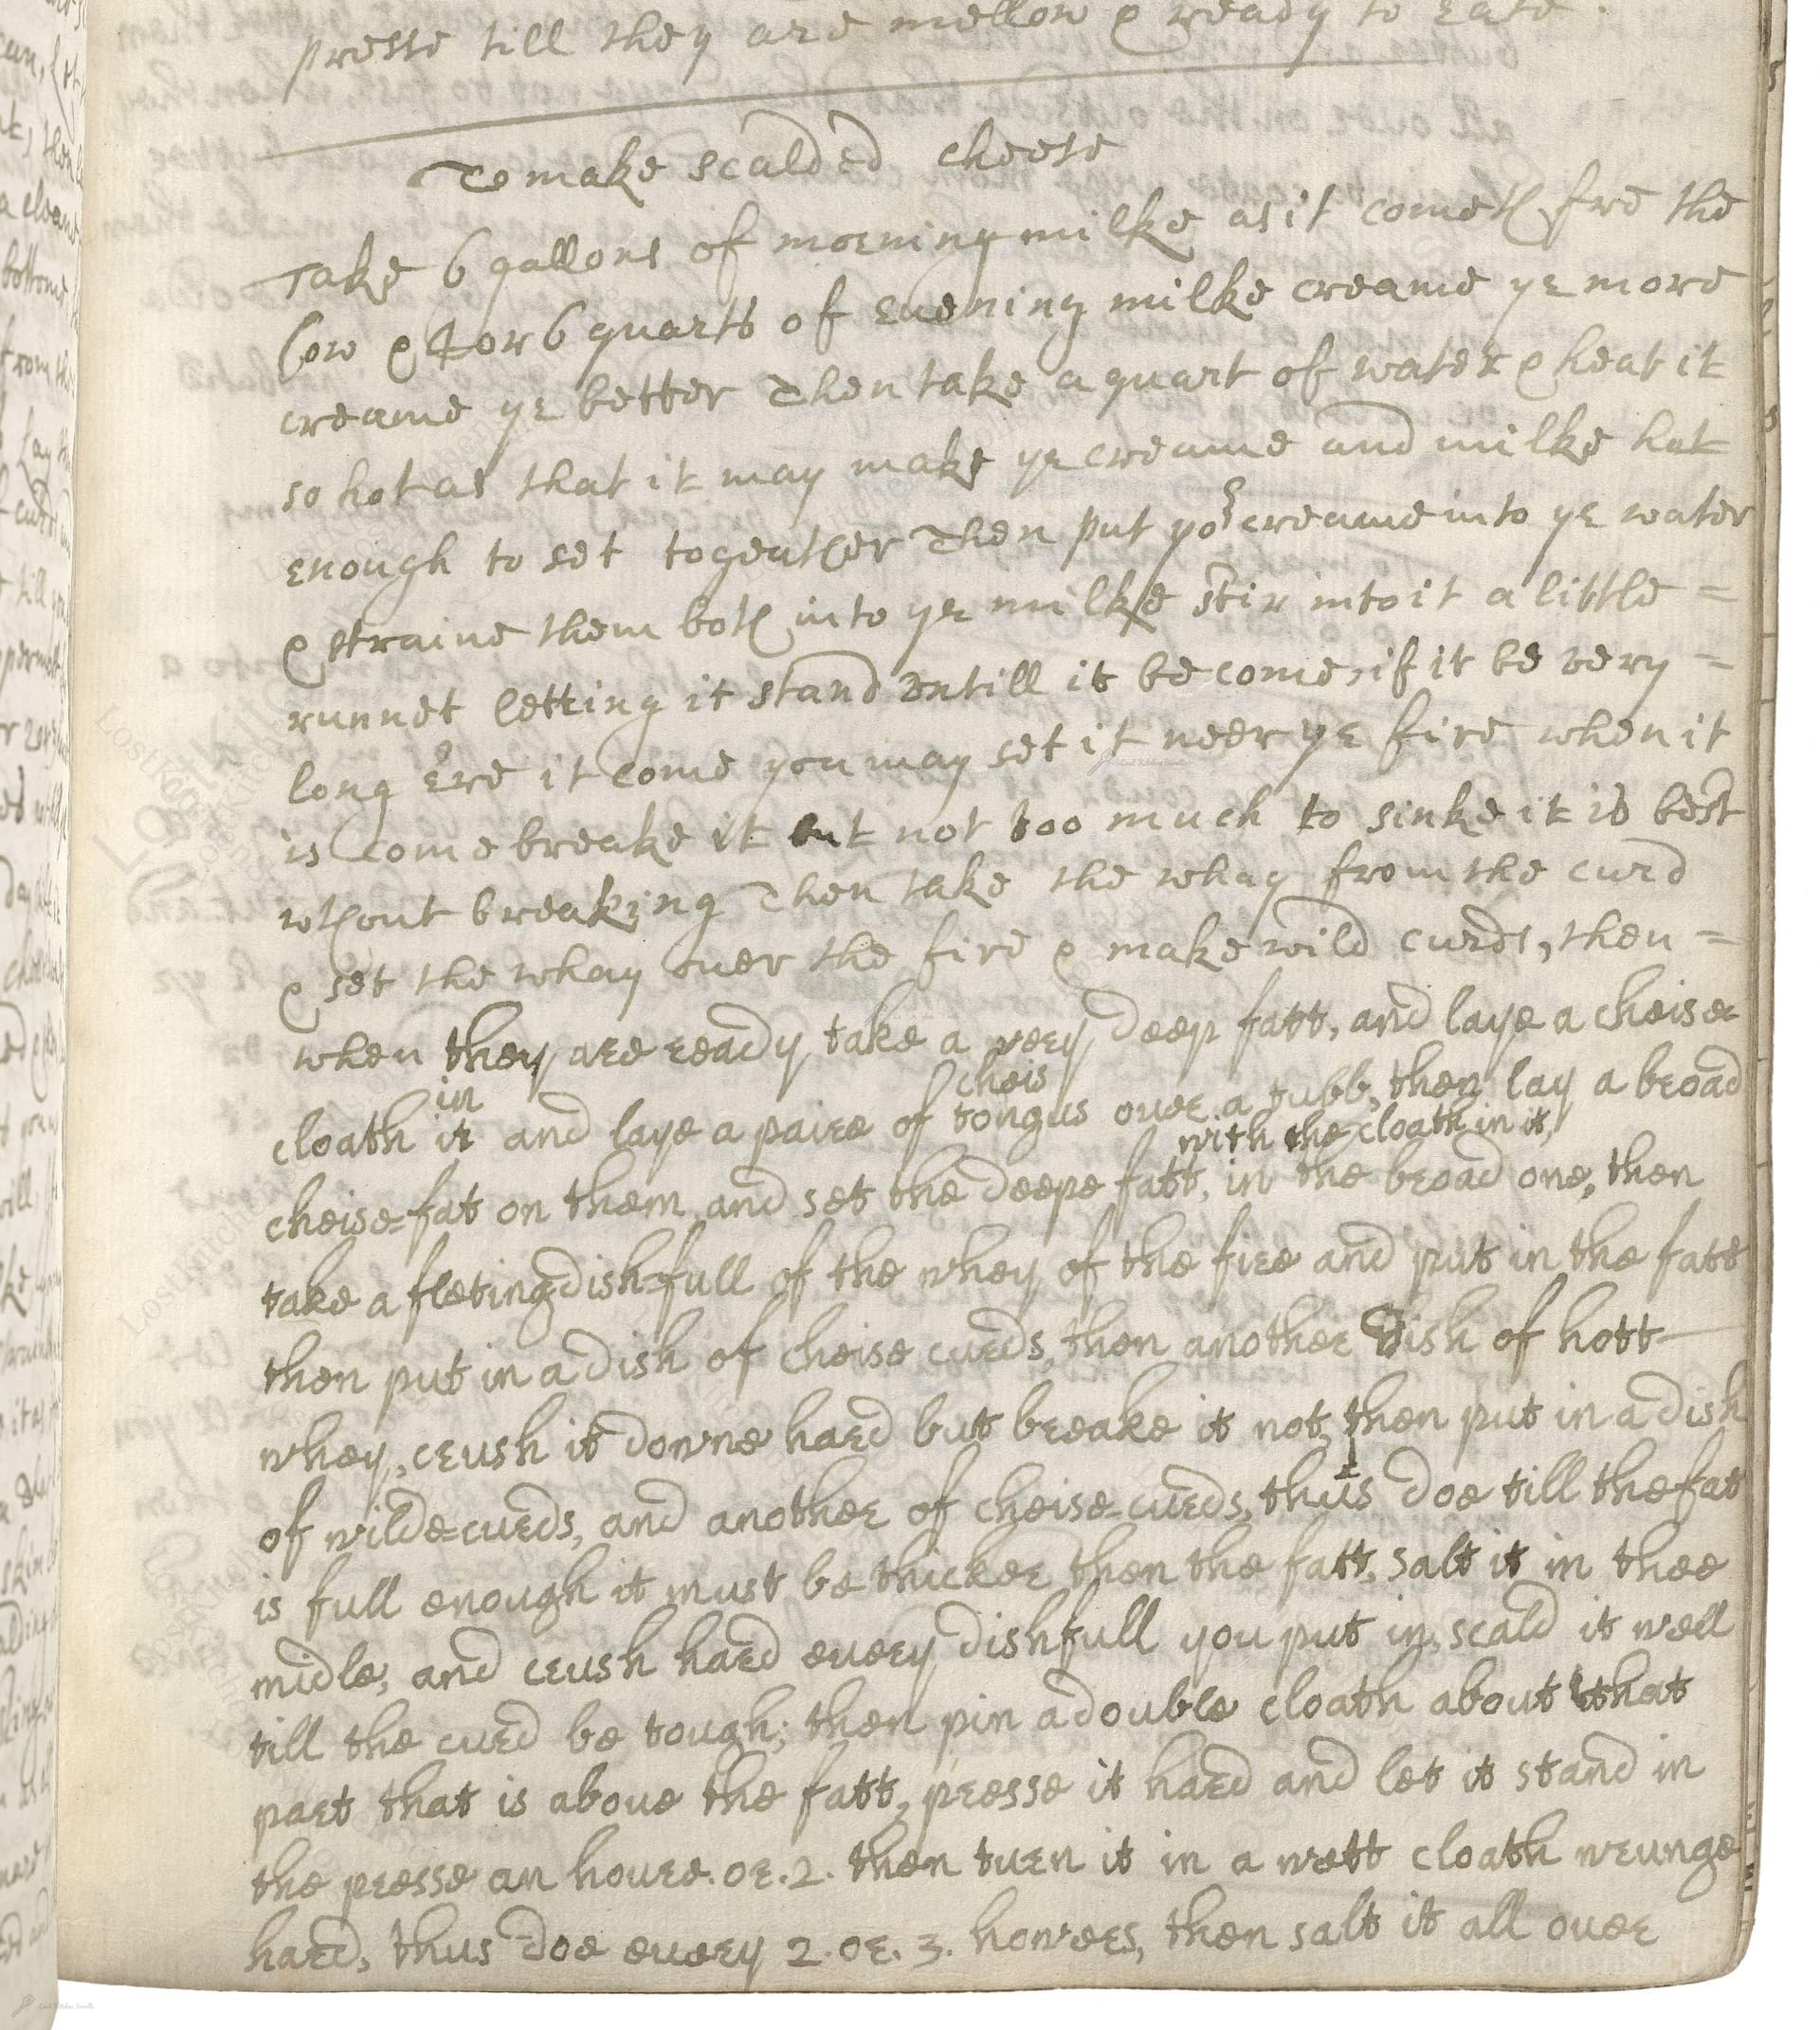 presse till they are mellow & ready to eate.
To make scalded cheese
Take 6 gallons of morning milke as it cometh fre the
Cow & 4 or 6 quarts of euening milke creame ye more
creame ye better Then take a quart of water & heat it
so hot as that it may make ye creame and milke hot
enough to set togeather Then put yor creame into ye water
& straine them both into ye milke stir into it a little =
runnet letting it stand vntill it be come, if it be very =
long ere it come you may set it neer ye fire when it
is come breake it but not too much to sinke it is best
wthout breaking Then take the whay from the curd
& set the whay ouer the fire & make wild curds, then =
when they are ready take a very deep fatt, and laye a cheise=
cloath in it and laye a paire of cheis tongus ouer a tubb, then lay a broad
cheise=fat on them and set the deepe fatt, with the cloath in it, in the broad one, then
take a fleting dish=full of the whey of the fire and put in the fatt
then put in a dish of cheise curds, then another dish of hott
whey, crush it downe hard but breake it not, then put in a dish
of wilde=curds, and another of cheise=curds, thus doe till the fat
is full enough it must be thicker then the fatt, salt it in thee
midle, and crush hard euery dishfull you put in, scald it well
till the curd be tough; then pin a double cloath about that
part that is aboue the fatt, presse it hard and let it stand in
the presse an houre. or. 2. then turn it in a wett cloath wrunge
hard, thus doe euery 2. or. 3. howers, then salt it all ouer